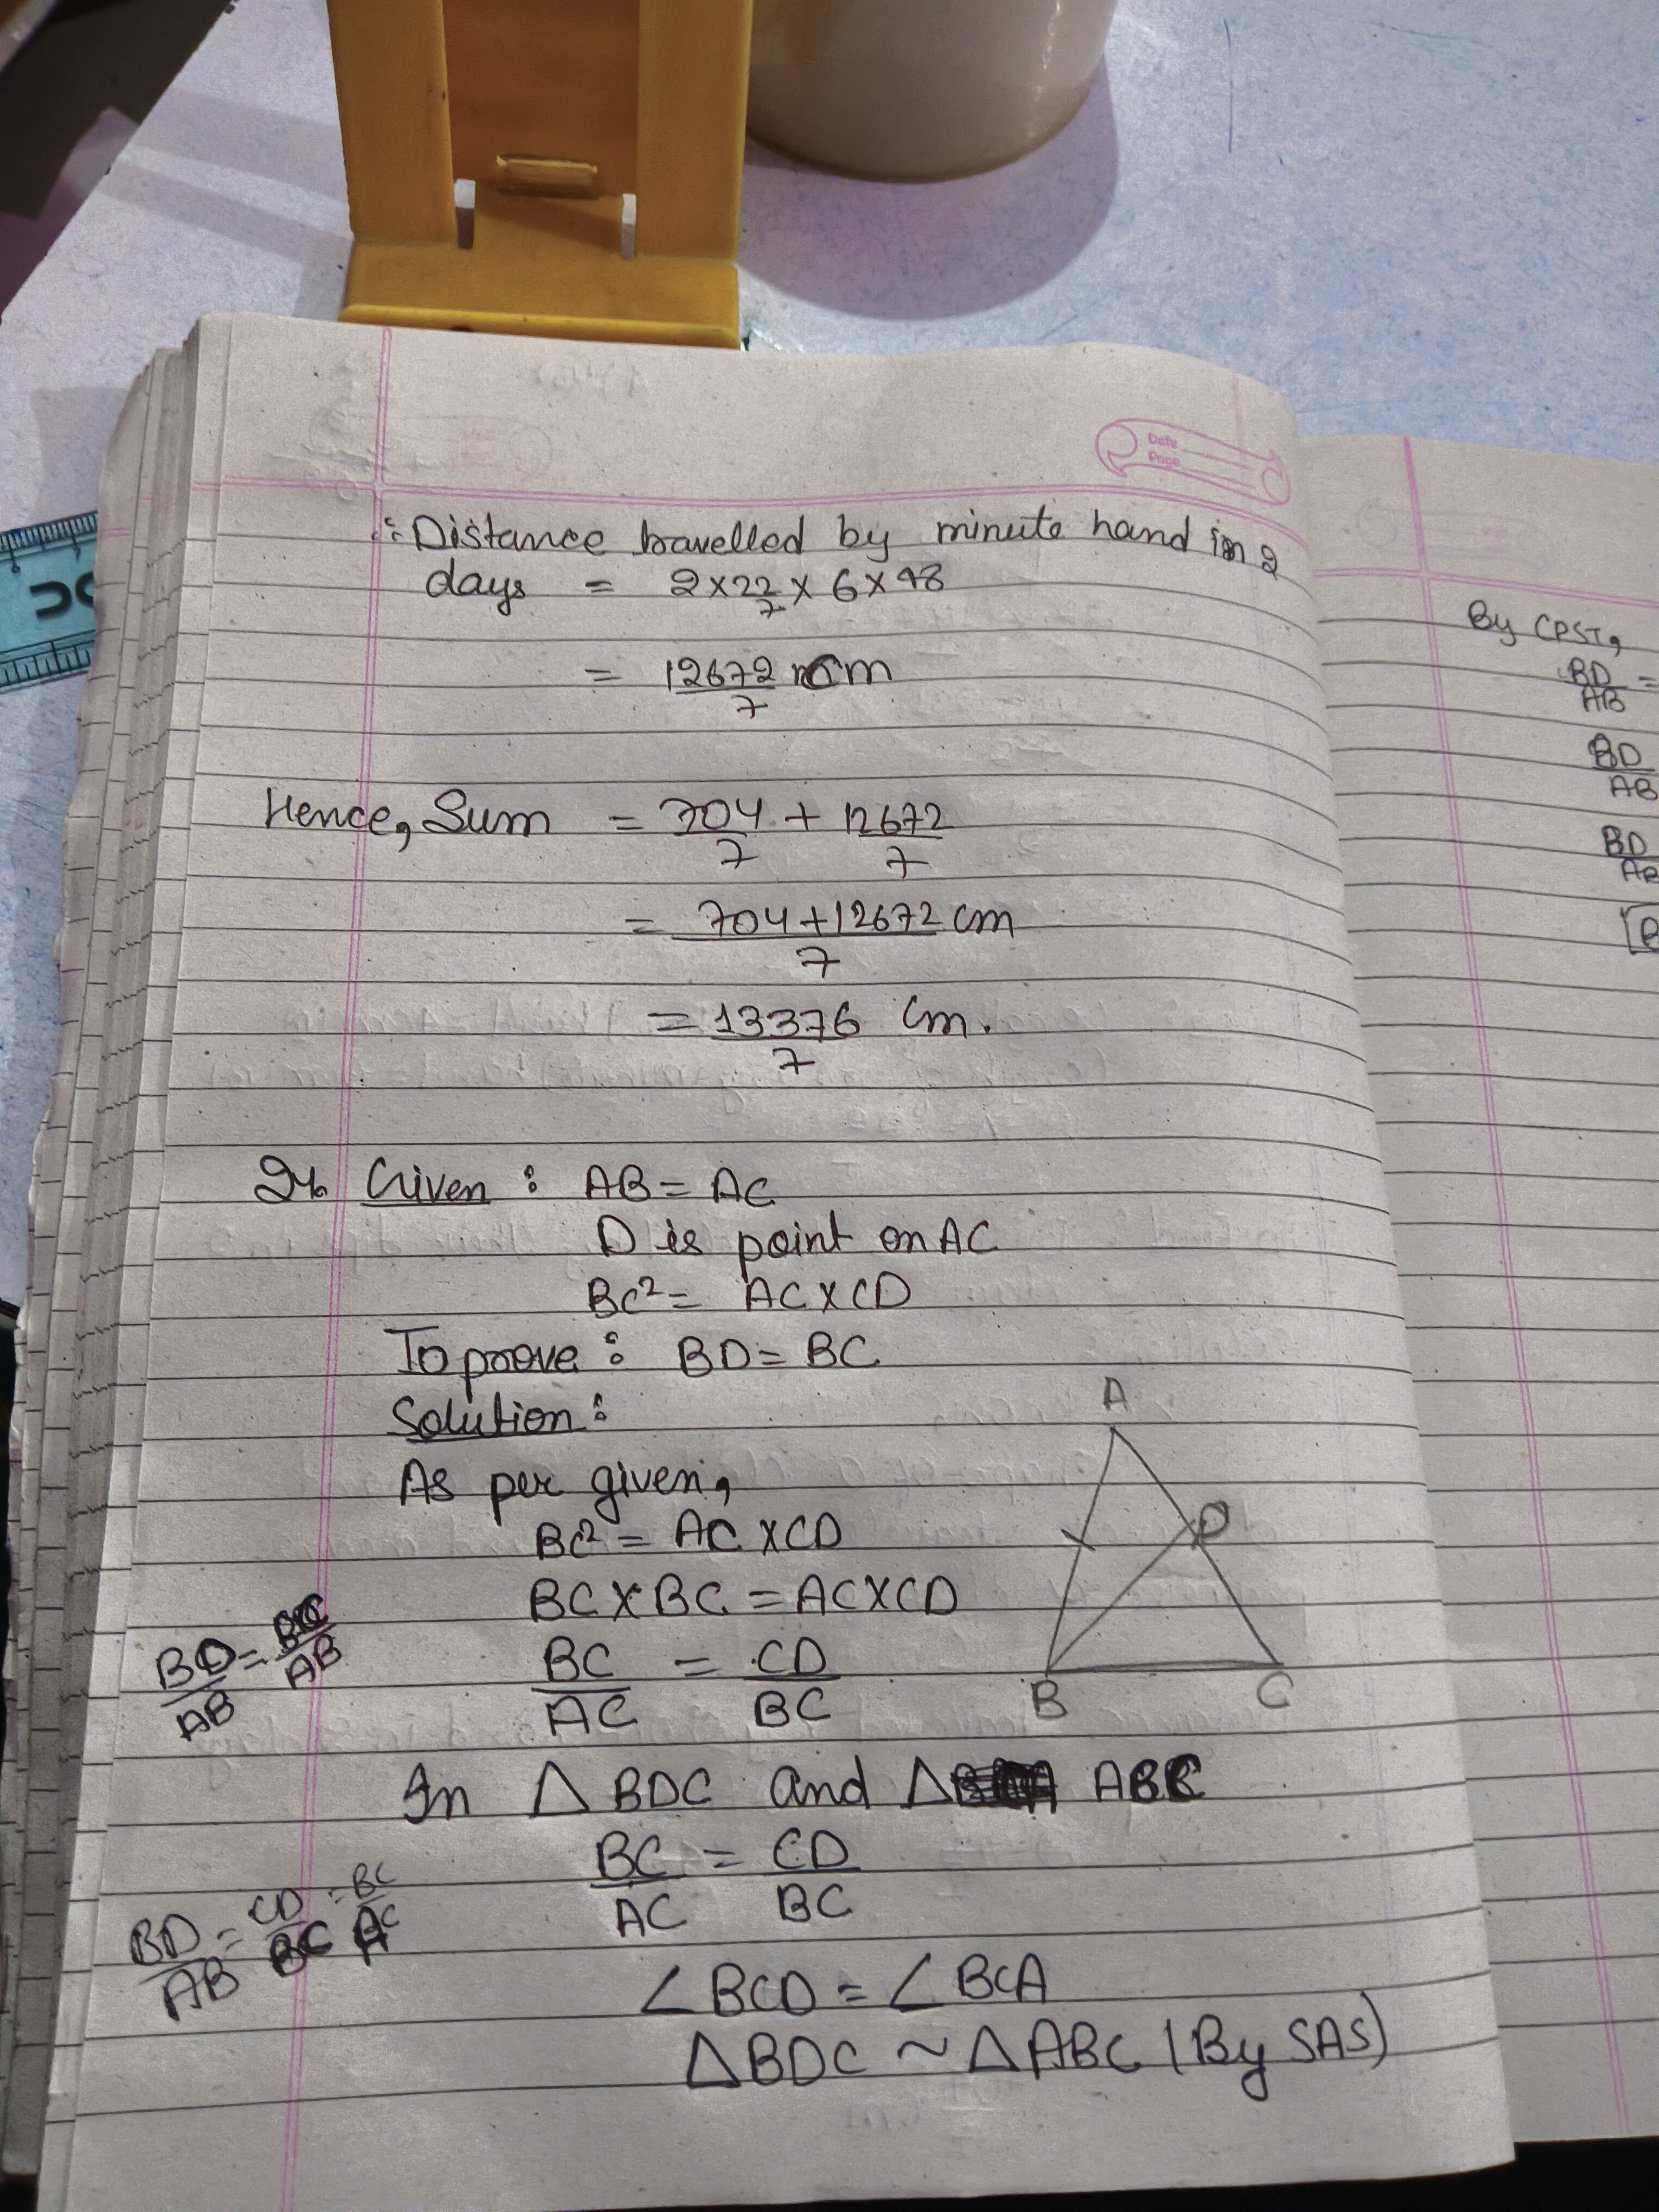 ∴ Distance travelled by minute hand in 2
days = 2×22/7 × 6×48
= 12672/7 cm
Hence, Sum = 704/7 + 12672/7
= 704+12672/7 cm
= 13376/7 cm.
24. Given : AB = AC
D is point on AC
BC² = AC×CD
To prove : BD = BC
Solution :
As per given,
BC² = AC×CD
BC×BC = AC×CD
BC/AC = CD/BC
In △BDC and △ ABC
BC/AC = CD/BC
∠BCD = ∠BCA
△BDC ~ △ABC (By SAS)
A
D
B
C
BD/AB = BC/AB
BD/AB = CD/BC = BC/AC
Date
Page
By CPST,
BD/AB =
BD/AB
BD/AB